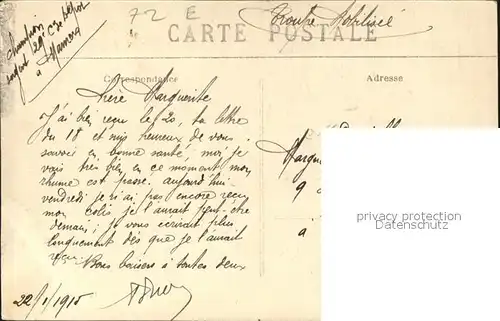 72 E
Troupe Mobilisé
champion
28e Cie Dépot
à Mamers
CARTE POSTALE
Correspondance
Adresse
Chère Marguerite
J'ai bien reçu le 20, ta lettre
du 18 et suis heureux de vous
savoir en bonne santé, moi je
vais très bien en ce moment mon
rhume est passé. aujourd'hui
vendredi je n'ai pas encore reçu
mon colis je l'aurait peut-être
demain; je vous écrirait plus
longuement dès que je l'aurait
reçu.
Bons baisers à toutes deux
22/1/1915
Margue
9
à
privacy protection
Datenschutz